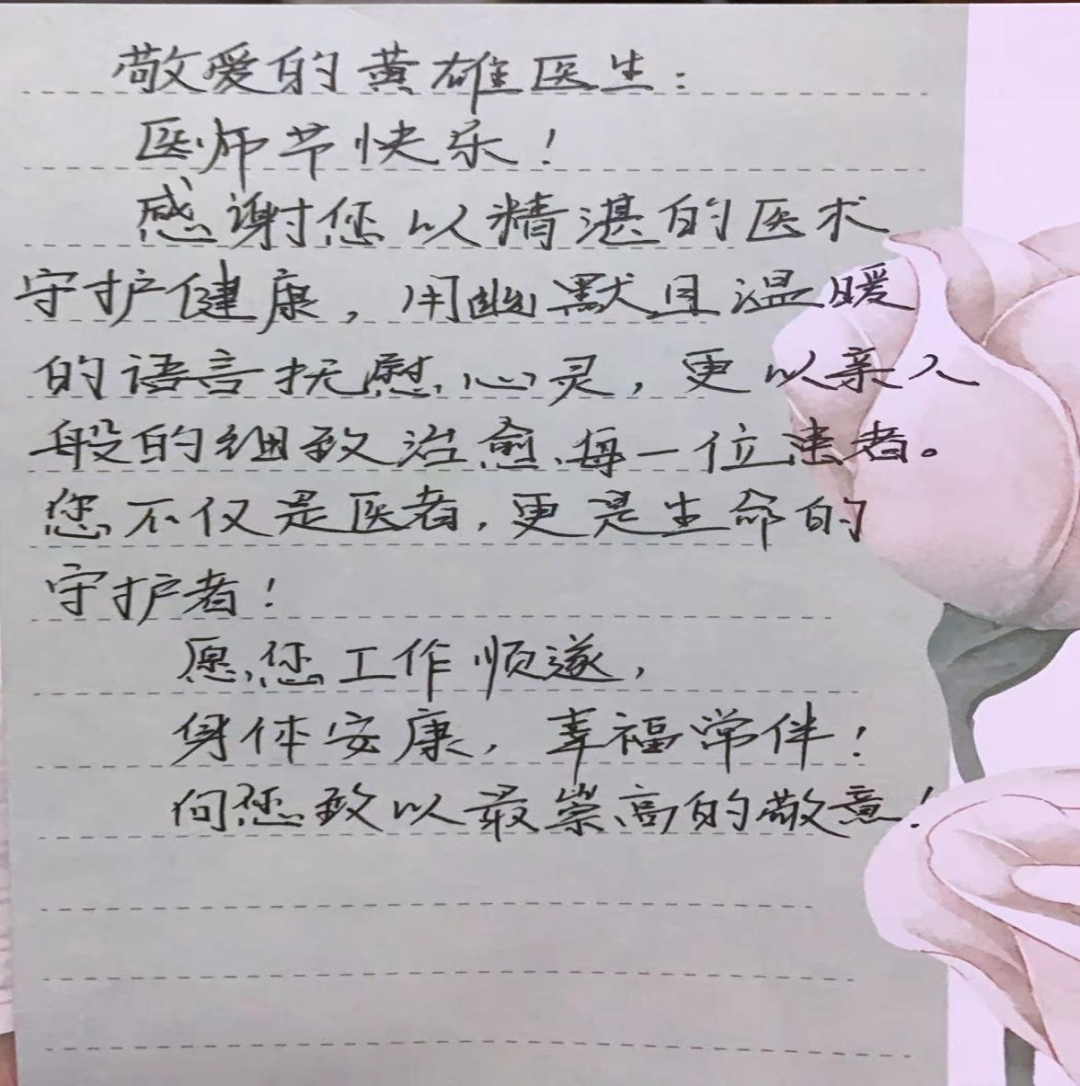 敬爱的黄雄医生：
医师节快乐！
感谢您以精湛的医术
守护健康，用幽默且温暖
的语言抚慰心灵，更以亲人
般的细致治愈每一位患者。
您不仅是医者，更是生命的
守护者！
愿您工作顺遂，
身体安康，幸福常伴！
向您致以最崇高的敬意！